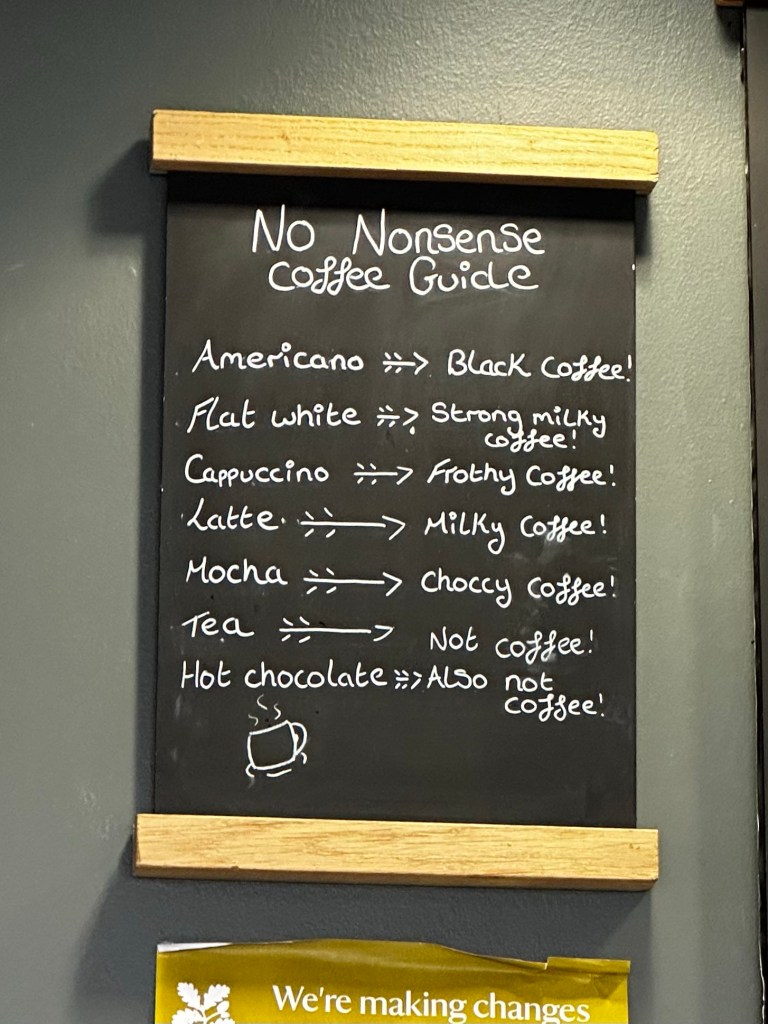 No Nonsense
Coffee Guide
Americano → Black Coffee!
Flat white → Strong milky
coffee!
Cappuccino → Frothy Coffee!
Latte → Milky Coffee!
Mocha → Choccy Coffee!
Tea → Not coffee!
Hot chocolate → Also not
coffee!
We're making changes